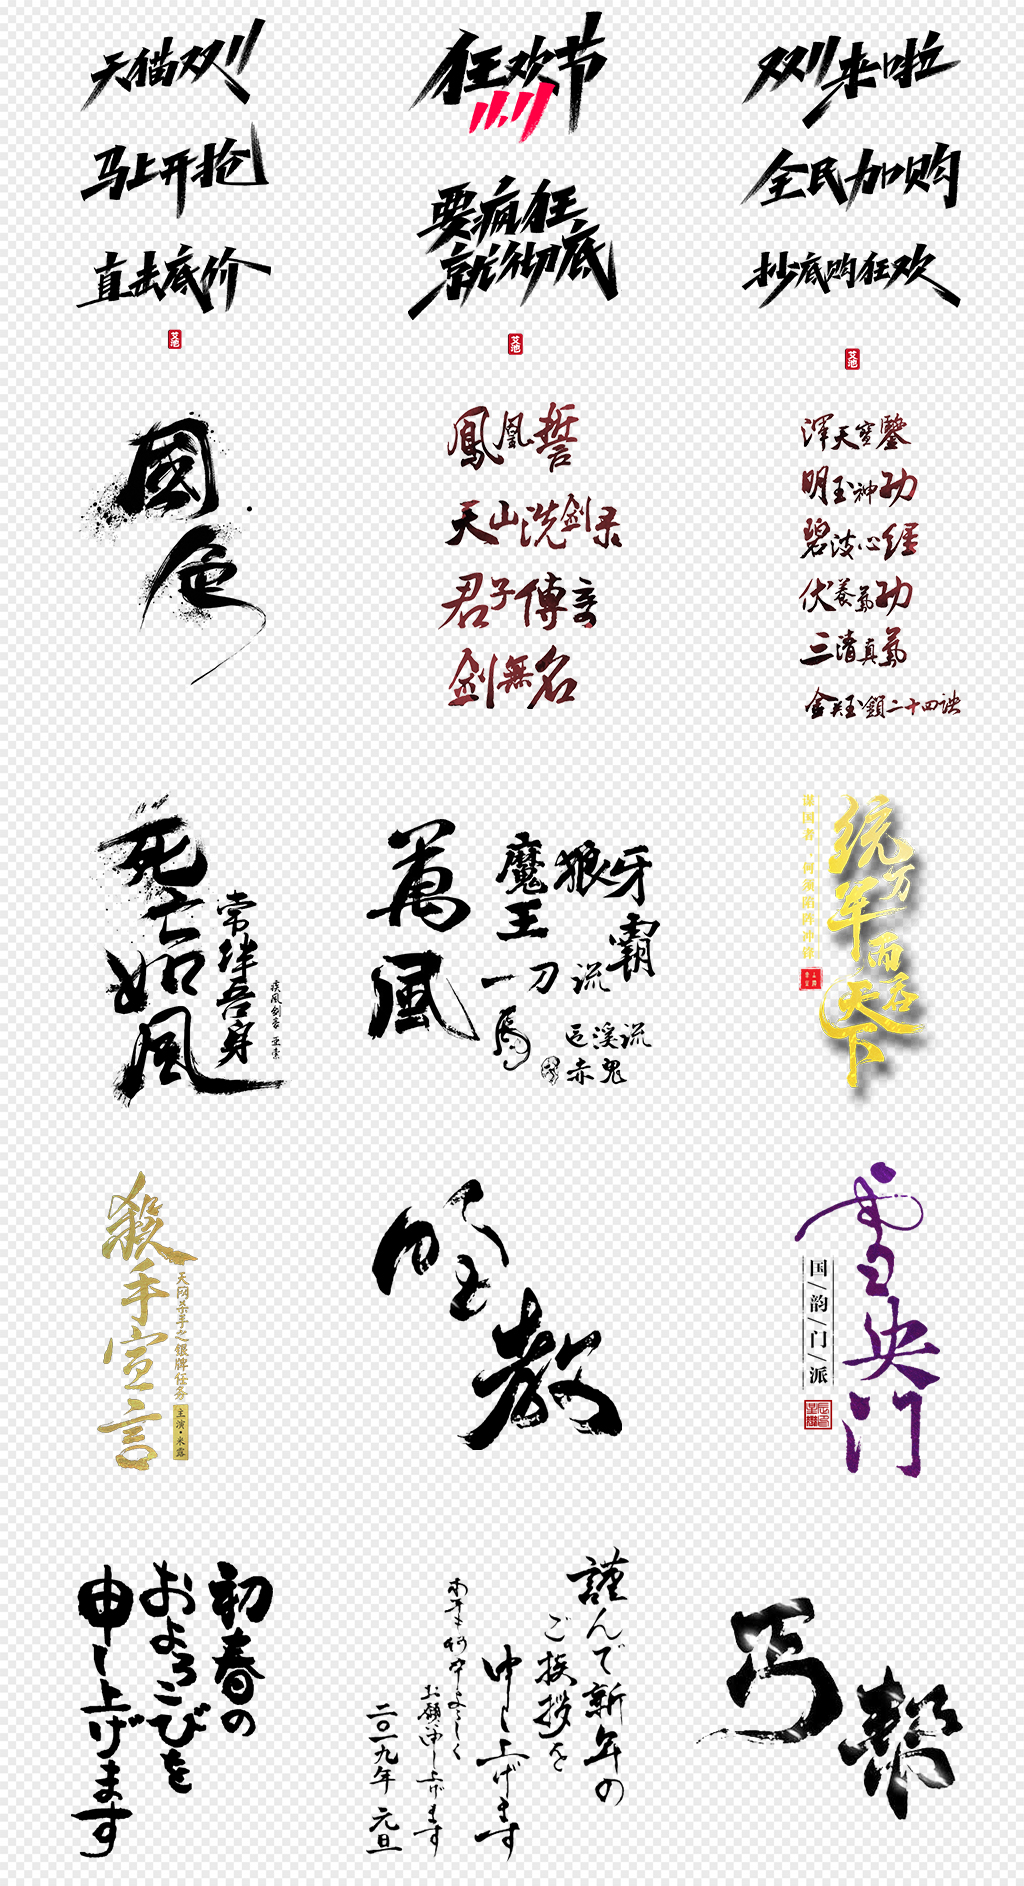 天猫双11
马上开抢
直击底价
艾池
狂欢节
11.11
要疯狂
就彻底
艾池
双11来啦
全民加购
抄底购狂欢
艾池
國色
鳳凰誓
天山洗剑录
君子傳奇
剑無名
渾天寶鑒
明玉神功
碧波心經
伏養氣功
三清真氣
金关玉鎖二十四诀
死亡如風
常伴吾身
疾風剑豪 亚索
萬風
魔王
狼牙
霸
一刀流
馬
匹溪流
赤鬼
谋国者，何须陷阵冲锋
统万军而吞天下
殺手宣言
天网杀手之银牌任务
主演·米露
明教
雪央门
国/韵/门/派
初春の
およろこびを
申し上げます
謹んで新年の
ご挨拶を
申し上げます
本年も何卒よろしく
お願い申し上げます
二〇一九年 元旦
丐幫